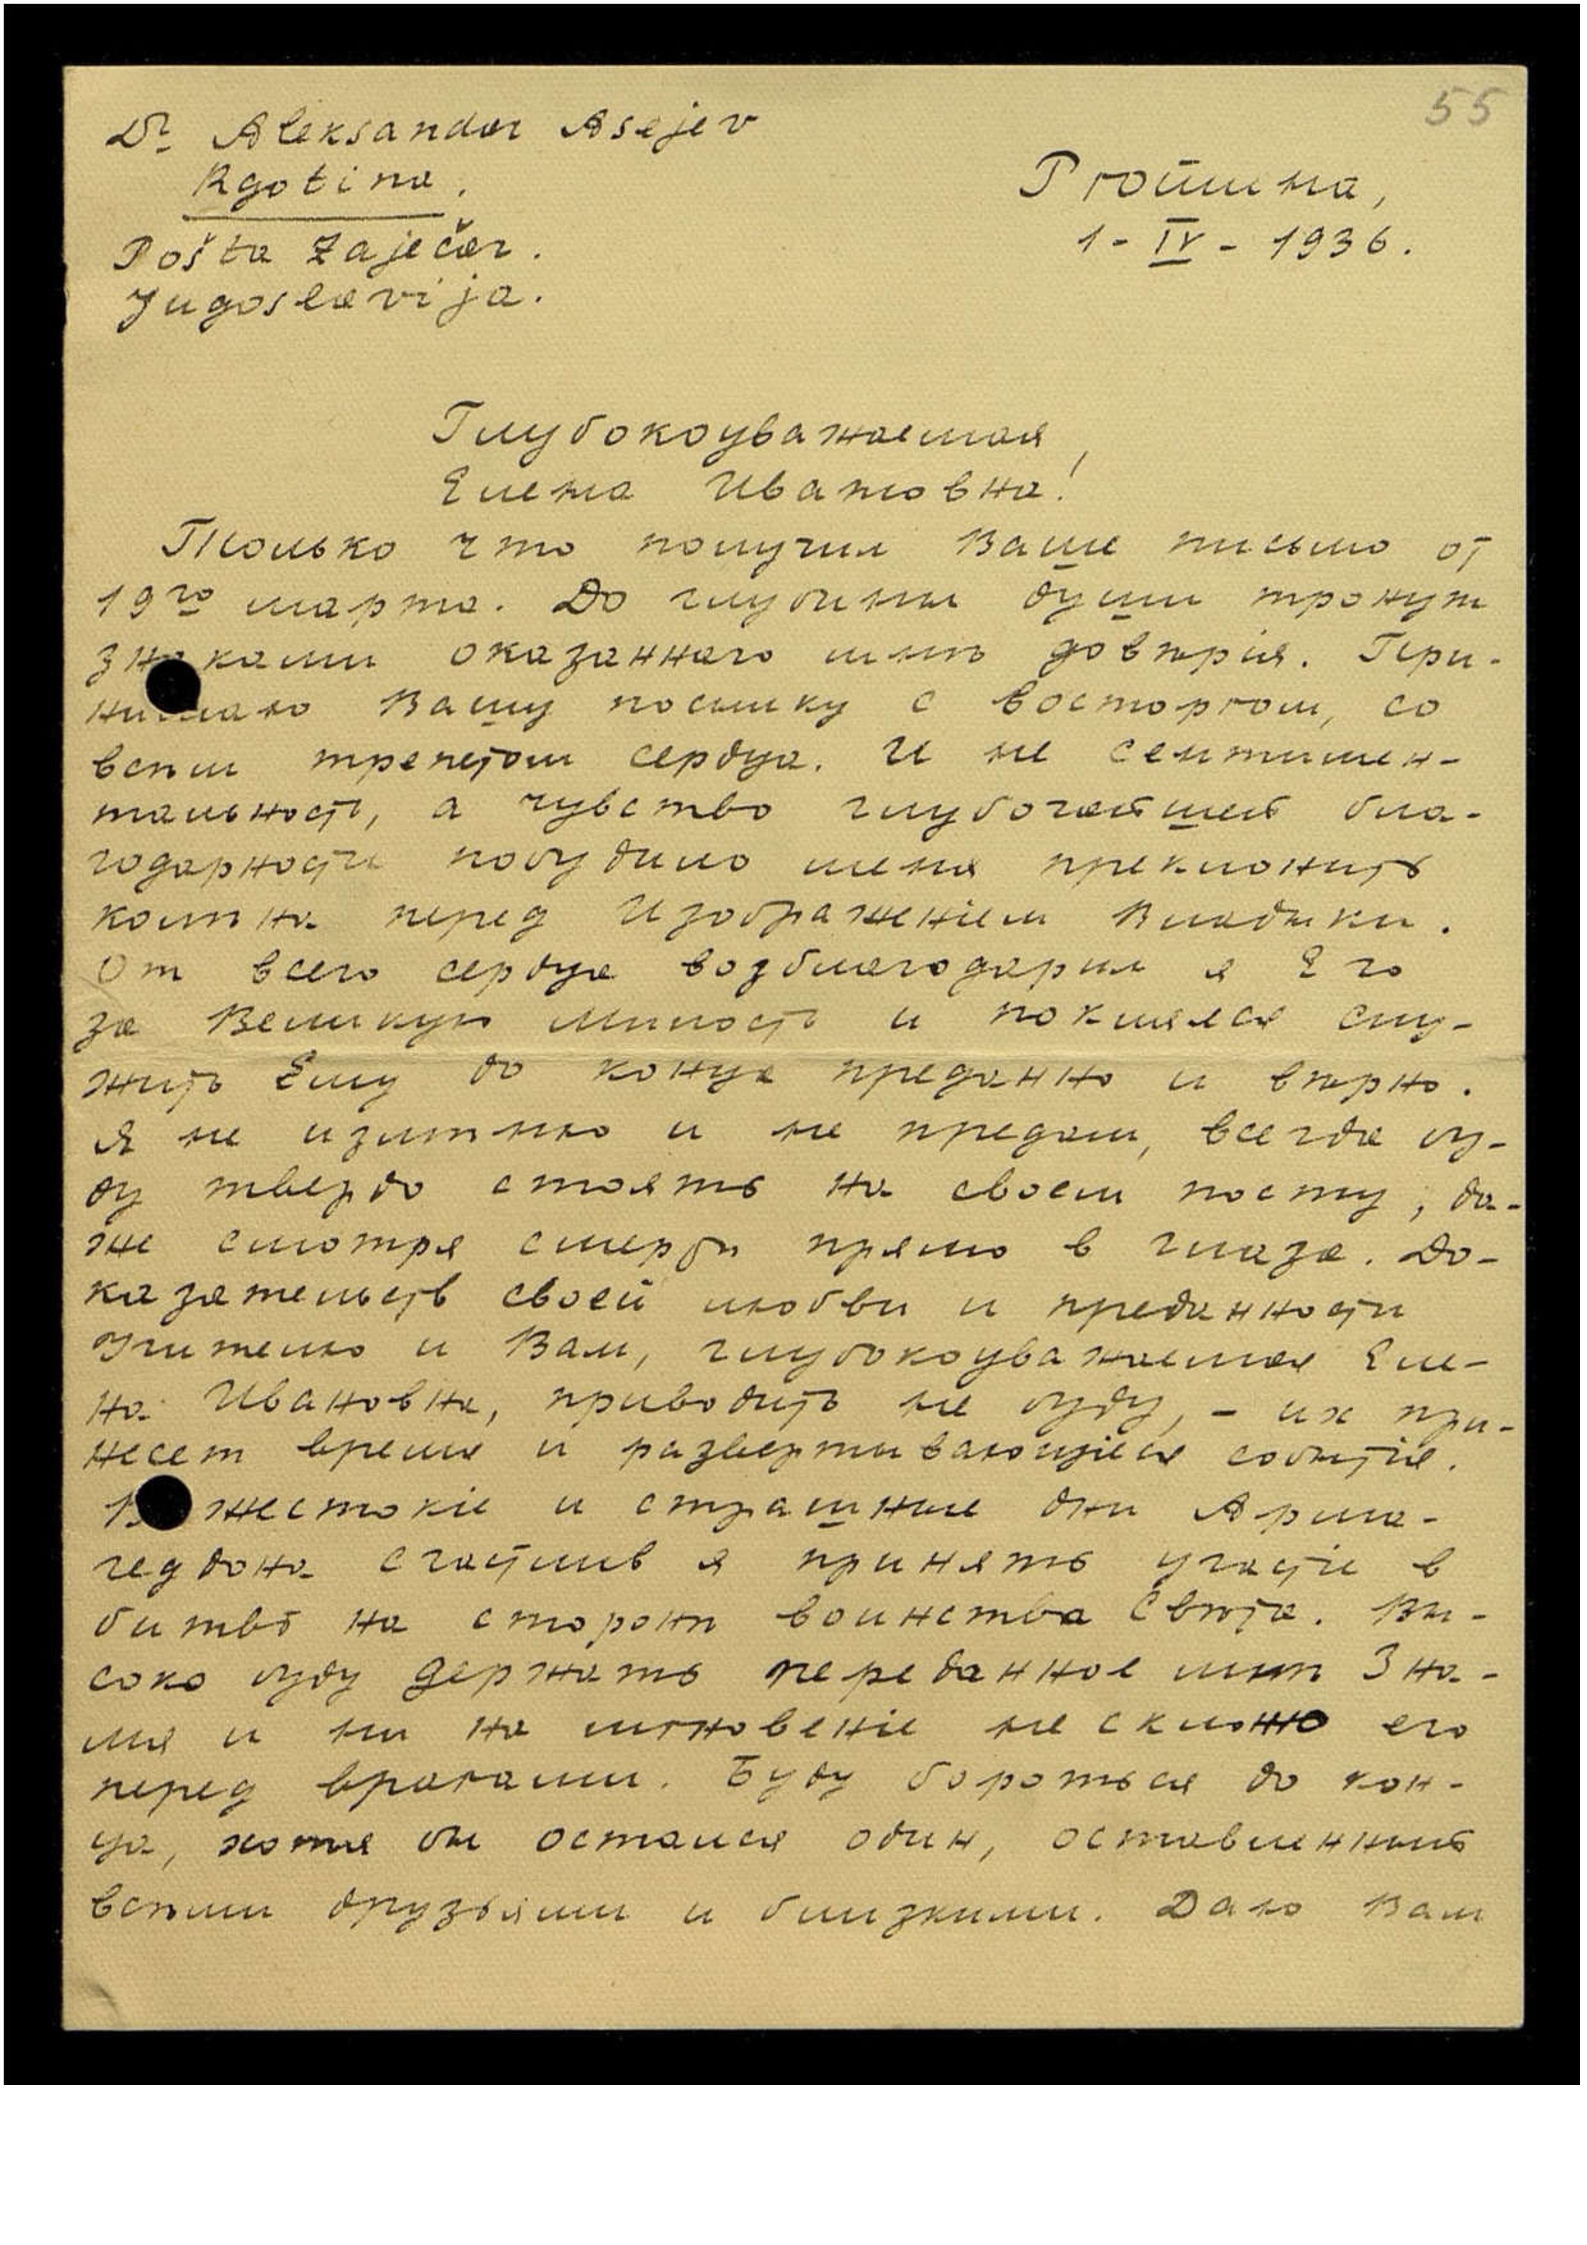 55
Dr Aleksandar Asejev
Rgotina.
Pošta Zaječar.
Jugoslavija.
Рготина,
1 - IV - 1936.
Глубокоуважаемая,
Елена Ивановна!
Только что получил Ваше письмо от
19го марта. До глубины души тронут
знаками оказаннаго мнѣ довѣрія. При-
нимаю Вашу посылку с восторгом, со
всѣм трепетом сердца. И не сентимен-
тальность, а чувство глубочайшей бла-
годарности побудило меня преклонить
колѣна перед Изображеніем Владыки.
От всего сердца возблагодарил я Его
за Великую Милость и поклялся слу-
жить Ему до конца преданно и вѣрно.
Я не измѣню и не предам, всегда бу-
ду твердо стоять на своем посту, да-
же смотря смерти прямо в глаза. До-
казательств своей любви и преданности
Учителю и Вам, глубокоуважаемая Еле-
на Ивановна, приводить не буду, - их при-
несет время и развертывающіеся событія.
В жестокіе и страшные дни Арма-
геддона счастлив я принять участіе в
битвѣ на сторонѣ воинства Свѣта. Вы-
соко буду держать переданное мнѣ Зна-
мя и ни на мгновеніе не склоню его
перед врагами. Буду бороться до кон-
ца, хотя бы остался один, оставленный
всѣми друзьями и близкими. Даю Вам